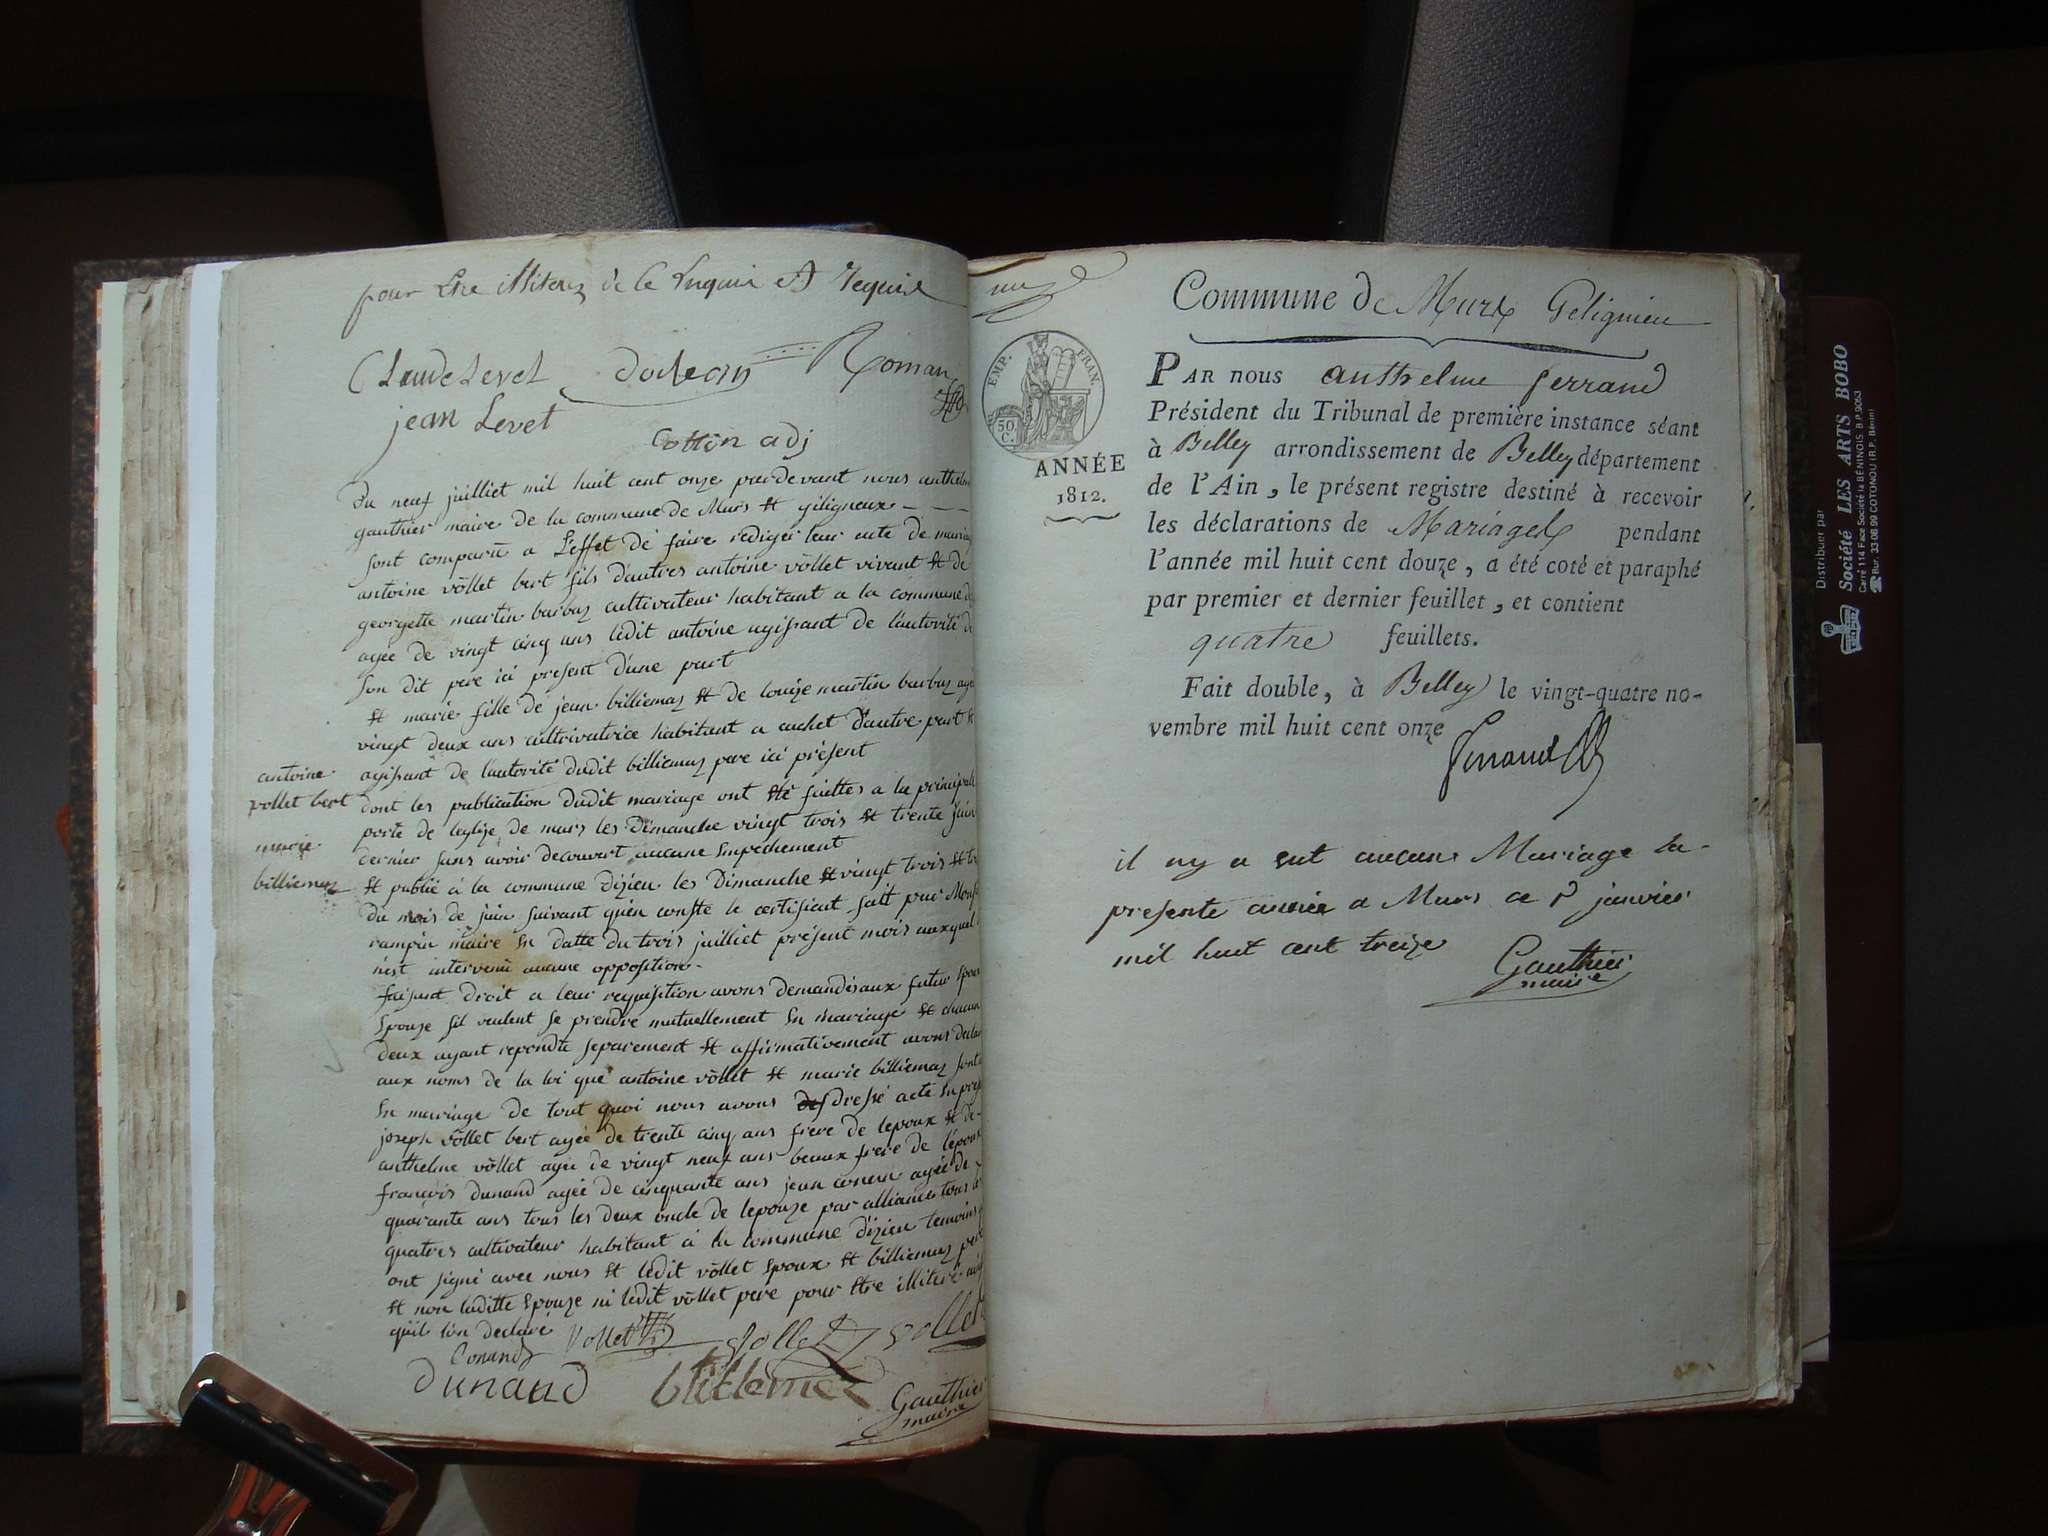 pour Etre illiterez de ce Enquis et Requis
Claude Levet Dodean Roman
jean Levet
Cottin adj
Du neuf juilliet mil huit cent onze pardevant nous anthelm
gauthier maire de la commune de Murs Et geligneux
sont comparu a L'effet de faire rediger leur acte de mariag
antoine vôllet bert fils d'autres antoine vôllet vivant Et de
georgette martin barbaz cultivateur habitant a la commune d
agée de vingt cinq ans ledit antoine agissant de l'autorité d
son dit pere ici present d'une part
Et marie fille de jean billiemaz Et de louize martin barbaz agé
vingt deux ans cultrivatrice habitant a cuchet d'autre part Et
agissant de lautorité dudit billiemaz pere ici présent
dont les publication dudit mariage ont Eté faittes a la principal
porte de leglize de murs les Dimanche vingt trois Et trente juin
dernier sans avoir decouvert aucune Empechement
Et publié à la commune dizieu les Dimanche Et vingt trois Et tr
du mois de juin suivant quen conste le certificat fait par Mons
rampin maire En datte du trois juilliet présent mois auxquel
n'est intervenu aucune opposition
faisant droit a leur requisition avons demandés aux futur Epou
Epouze sil veulent se prendre mutuellement En mariage Et chacun
deux ayant repondu separement Et affirmativement avons declar
aux noms de la loi que antoine vôllet Et marie billiemaz sont
En mariage de tout quoi nous avons des dressé acte En pres
joseph vôllet bert agée de trente cinq ans frere de lepoux Et de
anthelme vôllet agée de vingt neuf ans beaux frere de lépoux
francois dunand agée de cinquante ans jean conern agée de
quarante ans tous les deux oncle de lepouze par alliance tous le
quatres cultivateur habitant à la commune d'izieu temoins
ont signé avec nous Et ledit vôllet Epoux Et billiemaz pere
Et non laditte Epouze ni ledit vôllet pere pour Etre illiteré ainsi
quil lon declaré
Vollet vollet vollet
Conand
Dunand billiemaz
Gauthier
maire
antoine
vollet bert
marie
billiemaz
Commune de Murs Gelignieu
EMP. FRAN.
50.
C.
ANNÉE
1812.
PAR nous anthelme ferrand
Président du Tribunal de première instance séant
à Belley arrondissement de Belley département
de l'Ain, le présent registre destiné à recevoir
les déclarations de Mariages pendant
l'année mil huit cent douze, a été coté et paraphé
par premier et dernier feuillet, et contient
quatre feuillets.
Fait double, à Belley le vingt-quatre no-
vembre mil huit cent onze
ferrand
il ny a eut aucune Mariage la
presente année a Murs ce janvier
mil huit cent treize
Gauthier
maire
Distribuer par
Société LES ARTS BOBO
Carré 114 Face Société la BÉNINOIS B.P. 9053
Bur. 33-08 99 COTONOU (R.P. Bénin)